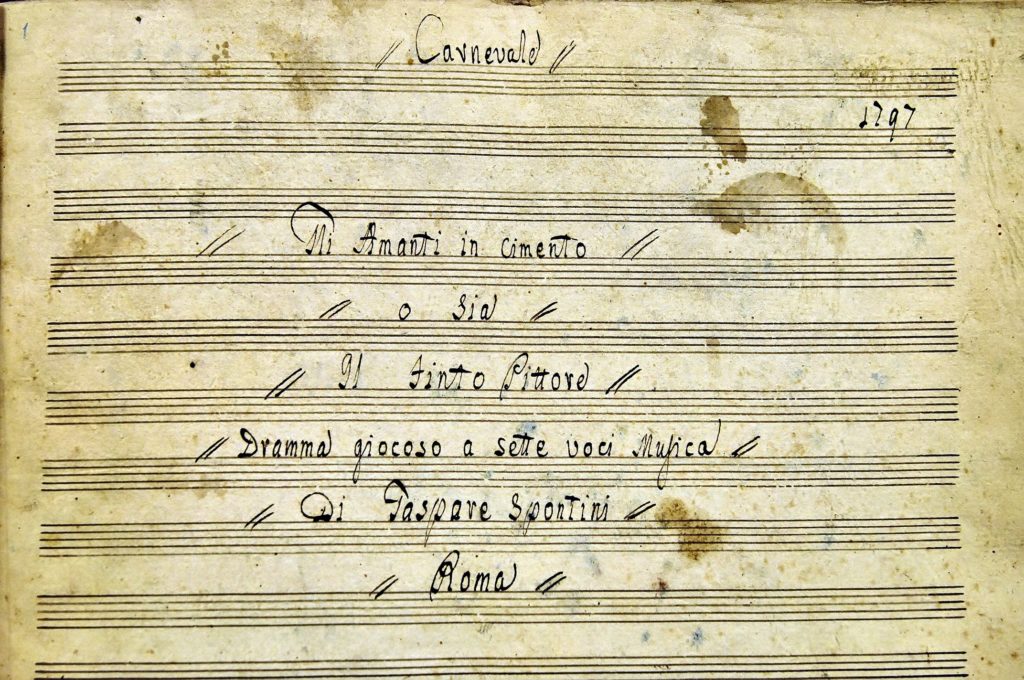 1
// Carnevale //
1797
// Gli Amanti in cimento //
// o Sia //
// Il finto Pittore //
// Dramma giocoso a sette voci Musica //
// Di Gaspare Spontini //
// Roma //